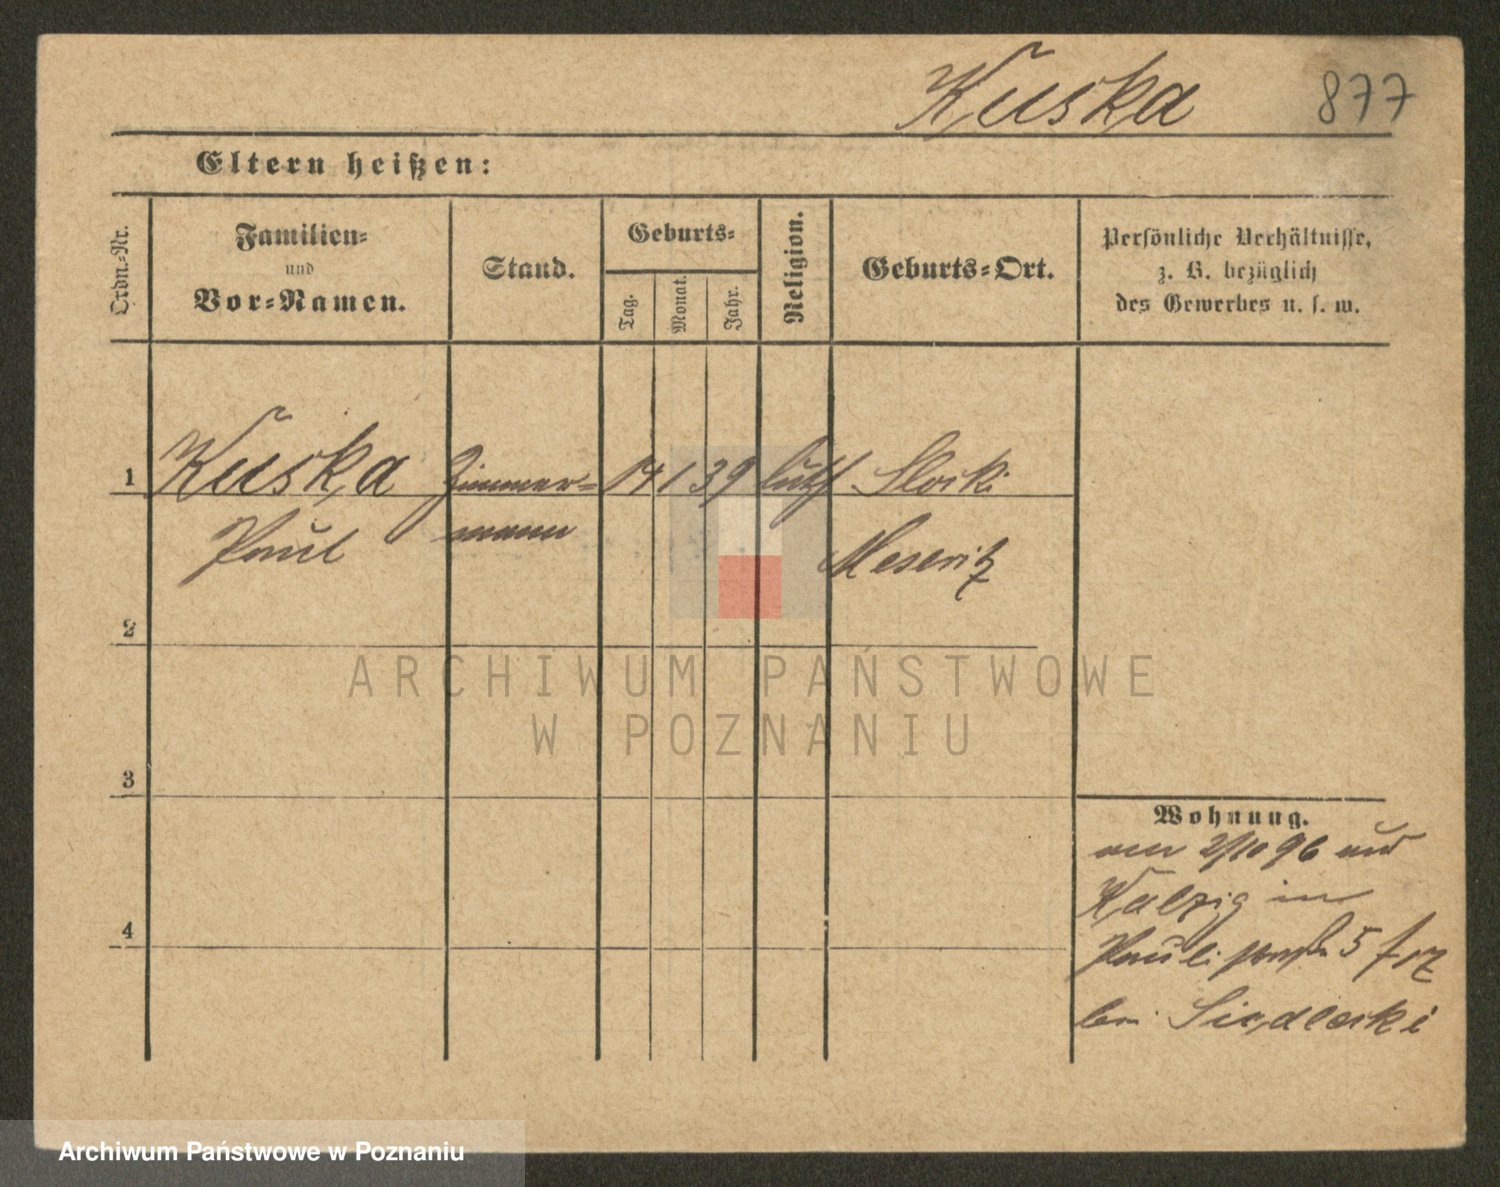 Kuska 877
Eltern heißen:
Ordn.-Nr.
Familien-
und
Vor-Namen.
Stand.
Geburts-
Tag.
Monat.
Jahr.
Religion.
Geburts-Ort.
Persönliche Verhältnisse,
z. B. bezüglich
des Gewerbes u. s. w.
1 Kuska Zimmer- 14 1 39 luth Slocki
Paul mann Meseritz
2
3
4
Wohnung.
am 2/10 96 aus
Kalzig in
Paulistraße 5
bei Siedlecki
ARCHIWUM PAŃSTWOWE
W POZNANIU
Archiwum Państwowe w Poznaniu